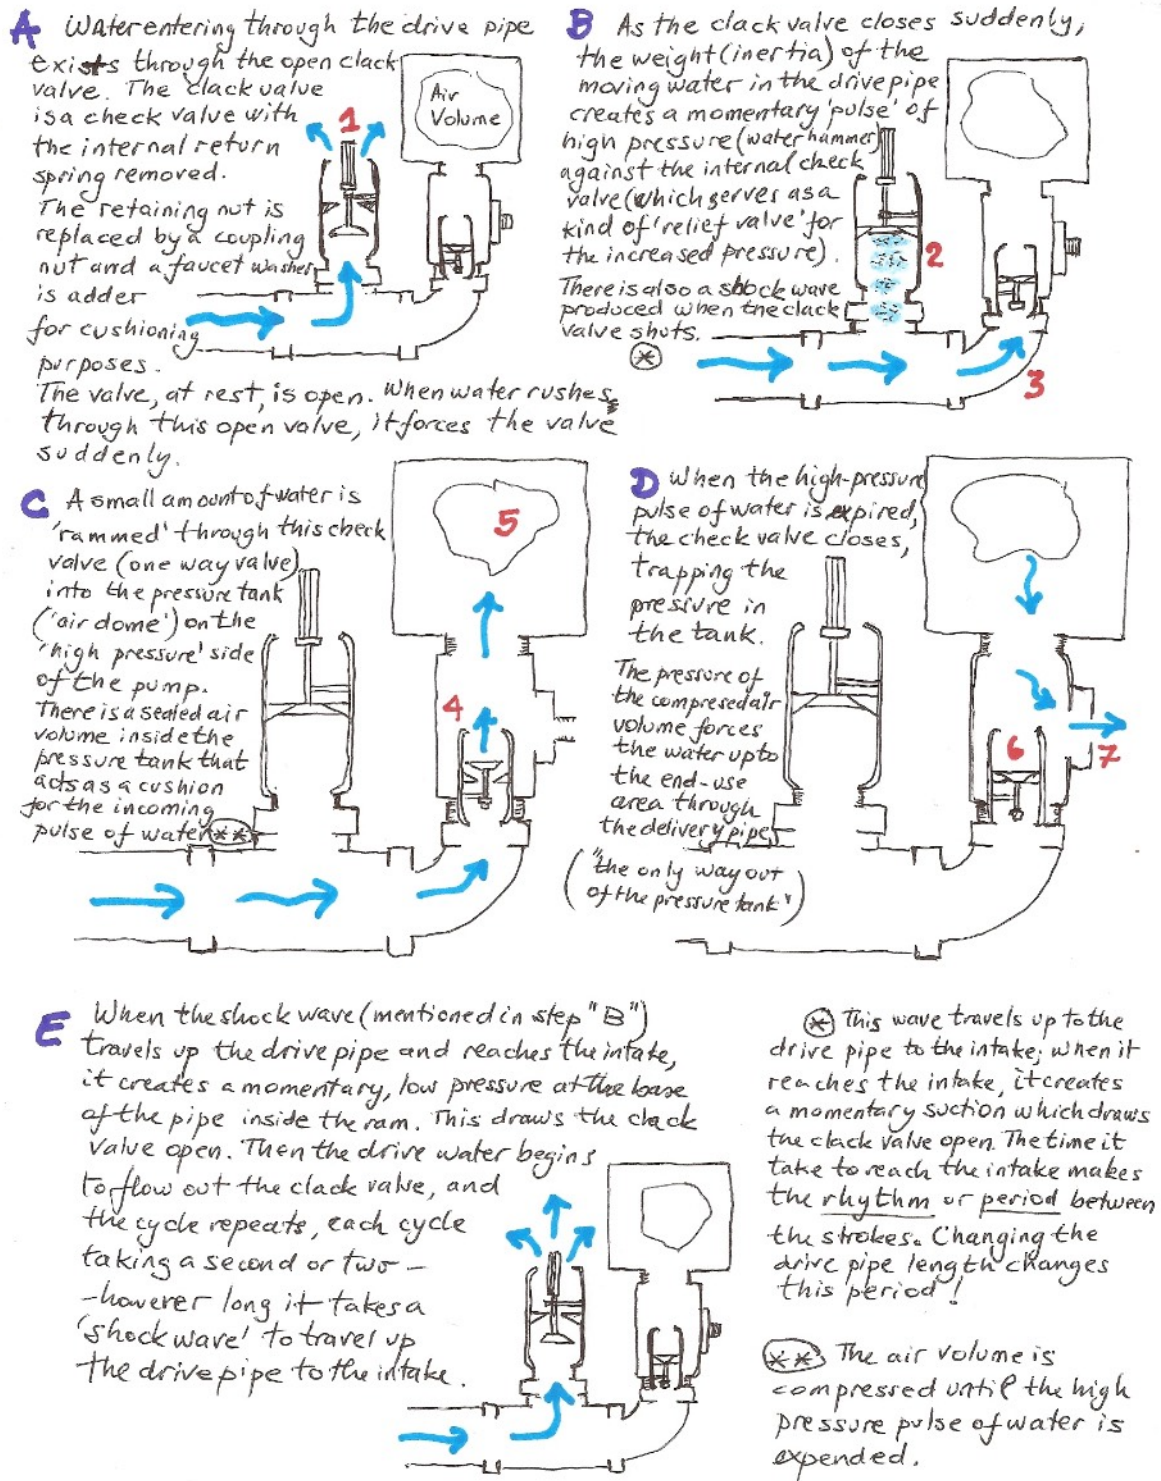 A Water entering through the drive pipe
exists through the open clack
valve. The clack value
is a check valve with
the internal return
spring removed.
The retaining nut is
replaced by a coupling
nut and a faucet washer
is adder
for cushioning
purposes.
The valve, at rest, is open. When water rushes
through this open valve, it forces the valve
suddenly.
1
Air
Volume
B As the clack valve closes suddenly,
the weight (inertia) of the
moving water in the drive pipe
creates a momentary 'pulse' of
high pressure (water hammer)
against the internal check
valve (which serves as a
kind of 'relief valve' for
the increased pressure).
There is also a shock wave
produced when the clack
valve shuts.
*
2
3
C A small amount of water is
'rammed' through this check
valve (one way valve)
into the pressure tank
('air dome') on the
'high pressure' side
of the pump.
There is a sealed air
volume inside the
pressure tank that
acts as a cushion
for the incoming
pulse of water **
4
5
D When the high-pressure
pulse of water is expired,
the check valve closes,
trapping the
pressure in
the tank.
The pressure of
the compresed air
volume forces
the water up to
the end-use
area through
the delivery pipe
("the only way out
of the pressure tank")
6
7
E When the shock wave (mentioned in step "B")
travels up the drive pipe and reaches the intake,
it creates a momentary, low pressure at the base
of the pipe inside the ram. This draws the clack
valve open. Then the drive water begins
to flow out the clack valve, and
the cycle repeats, each cycle
taking a second or two -
- however long it takes a
'shock wave' to travel up
the drive pipe to the intake.
* This wave travels up to the
drive pipe to the intake; when it
reaches the intake, it creates
a momentary suction which draws
the clack valve open. The time it
take to reach the intake makes
the rhythm or period between
the strokes. Changing the
drive pipe length changes
this period!
** The air volume is
compressed until the high
pressure pulse of water is
expended.